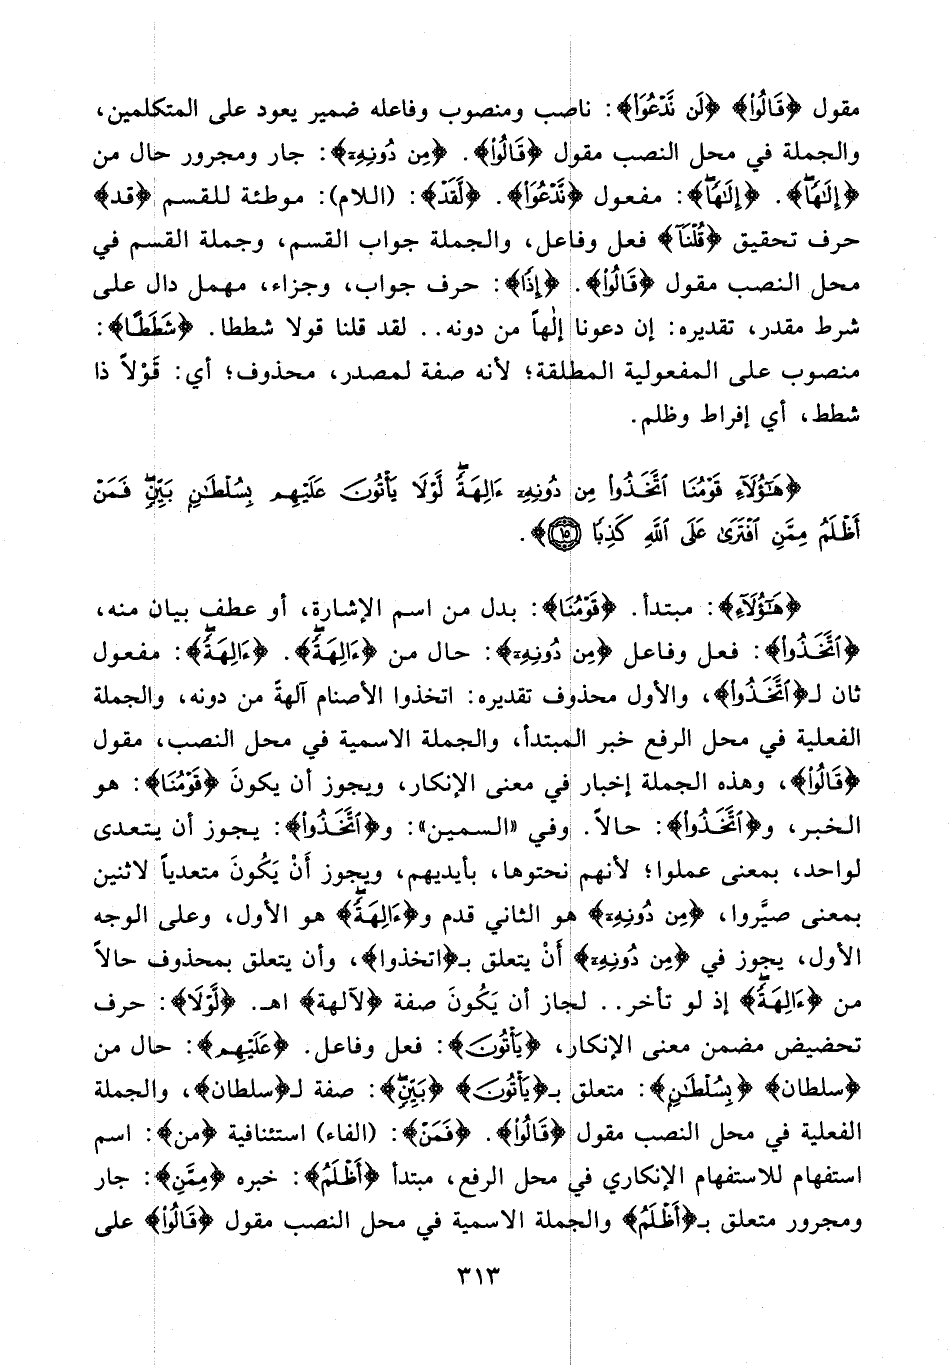 مقول ﴿قَالُوا۟﴾ ﴿لَن نَّدْعُوَا۟﴾: ناصب ومنصوب وفاعله ضمير يعود على المتكلمين،
والجملة في محل النصب مقول ﴿قَالُوا۟﴾. ﴿مِن دُونِهِۦٓ﴾: جار ومجرور حال من
﴿إِلَٰهًاۖ﴾. ﴿إِلَٰهًاۖ﴾: مفعول ﴿نَّدْعُوَا۟﴾. ﴿لَّقَدْ﴾: (اللام): موطئة للقسم ﴿قد﴾
حرف تحقيق ﴿قُلْنَآ﴾ فعل وفاعل، والجملة جواب القسم، وجملة القسم في
محل النصب مقول ﴿قَالُوا۟﴾. ﴿إِذًا﴾: حرف جواب، وجزاء، مهمل دال على
شرط مقدر، تقديره: إن دعونا إلٰهاً من دونه.. لقد قلنا قولا شططا. ﴿شَطَطًا﴾:
منصوب على المفعولية المطلقة؛ لأنه صفة لمصدر، محذوف؛ أي: قَوْلاً ذا
شطط، أي إفراط وظلم.
﴿هَٰٓؤُلَآءِ قَوْمُنَا ٱتَّخَذُوا۟ مِن دُونِهِۦٓ ءَالِهَةًۖ لَّوْلَا يَأْتُونَ عَلَيْهِم بِسُلْطَٰنٍۭ بَيِّنٍۖ فَمَنْ
أَظْلَمُ مِمَّنِ ٱفْتَرَىٰ عَلَى ٱللَّهِ كَذِبًا ١٥﴾.
﴿هَٰٓؤُلَآءِ﴾: مبتدأ. ﴿قَوْمُنَا﴾: بدل من اسم الإشارة، أو عطف بيان منه،
﴿ٱتَّخَذُوا۟﴾: فعل وفاعل ﴿مِن دُونِهِۦٓ﴾: حال من ﴿ءَالِهَةًۖ﴾. ﴿ءَالِهَةًۖ﴾: مفعول
ثان لـ﴿ٱتَّخَذُوا۟﴾، والأول محذوف تقديره: اتخذوا الأصنام آلهةً من دونه، والجملة
الفعلية في محل الرفع خبر المبتدأ، والجملة الاسمية في محل النصب، مقول
﴿قَالُوا۟﴾، وهذه الجملة إخبار في معنى الإنكار، ويجوز أن يكونَ ﴿قَوْمُنَا﴾: هو
الخبر، و﴿ٱتَّخَذُوا۟﴾: حالاً. وفي «السمين»: و﴿ٱتَّخَذُوا۟﴾: يجوز أن يتعدى
لواحد، بمعنى عملوا؛ لأنهم نحتوها، بأيديهم، ويجوز أَنْ يَكُونَ متعدياً لاثنين
بمعنى صيَّروا، ﴿مِن دُونِهِۦٓ﴾ هو الثاني قدم و﴿ءَالِهَةًۖ﴾ هو الأول، وعلى الوجه
الأول، يجوز في ﴿مِن دُونِهِۦٓ﴾ أَنْ يتعلق بـ﴿اتخذوا﴾، وأن يتعلق بمحذوف حالاً
من ﴿ءَالِهَةًۖ﴾ إذ لو تأخر.. لجاز أن يَكُونَ صفة ﴿لآلهة﴾ اهـ. ﴿لَّوْلَا﴾: حرف
تحضيض مضمن معنى الإنكار، ﴿يَأْتُونَ﴾: فعل وفاعل. ﴿عَلَيْهِم﴾: حال من
﴿سلطان﴾ ﴿بِسُلْطَٰنٍۭ﴾: متعلق بـ﴿يَأْتُونَ﴾ ﴿بَيِّنٍۖ﴾: صفة لـ﴿سلطان﴾، والجملة
الفعلية في محل النصب مقول ﴿قَالُوا۟﴾. ﴿فَمَنْ﴾: (الفاء) استئنافية ﴿من﴾: اسم
استفهام للاستفهام الإنكاري في محل الرفع، مبتدأ ﴿أَظْلَمُ﴾: خبره ﴿مِمَّنِ﴾: جار
ومجرور متعلق بـ﴿أَظْلَمُ﴾ والجملة الاسمية في محل النصب مقول ﴿قَالُوا۟﴾ على
٣١٣